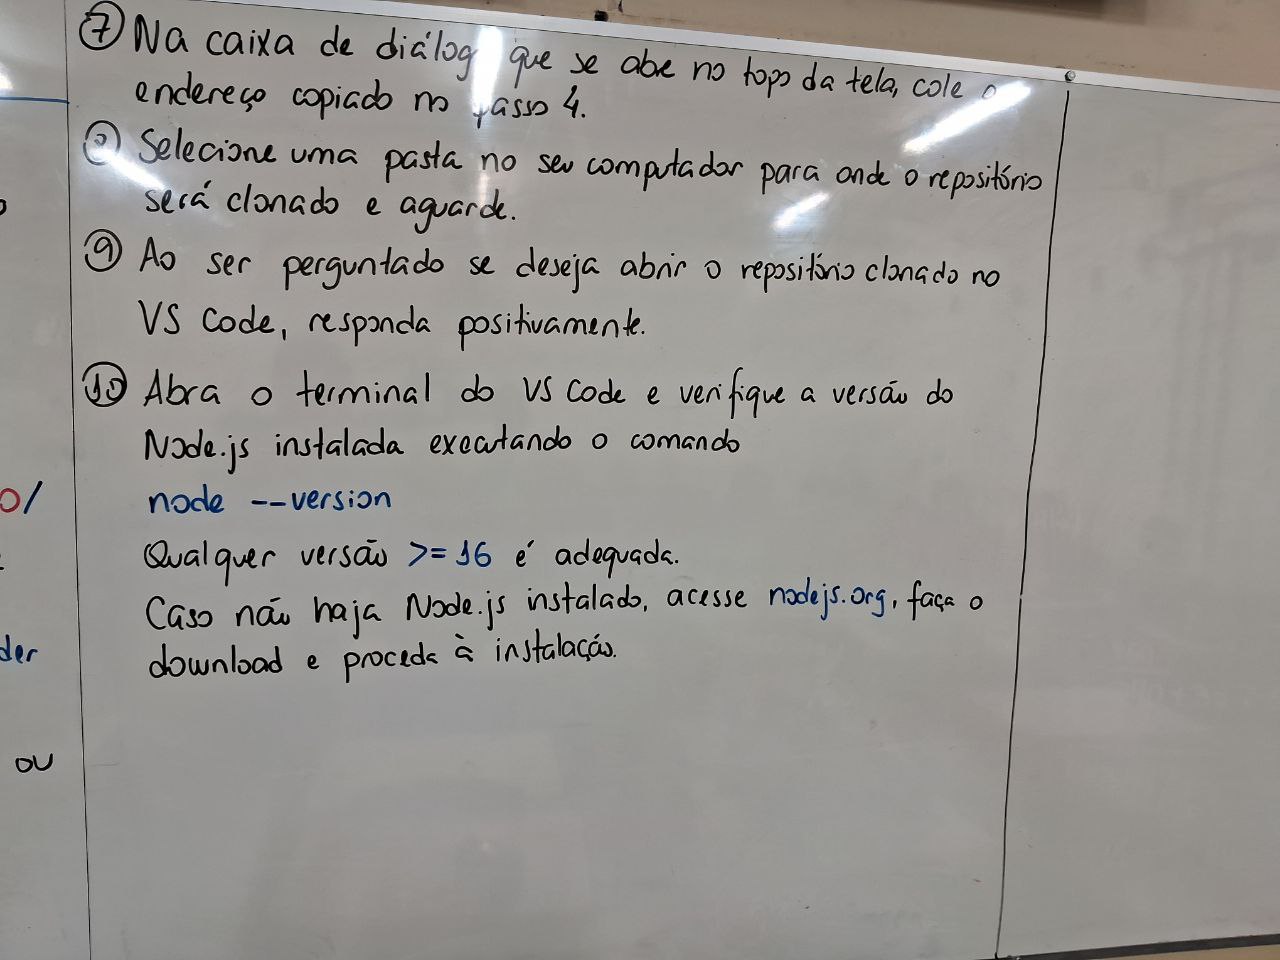 ⑦ Na caixa de diálog que se abe no topo da tela, cole o
endereço copiado no passo 4.
⑧ Selecione uma pasta no seu computador para onde o repositório
será clonado e aguarde.
⑨ Ao ser perguntado se deseja abrir o repositório clonado no
VS Code, responda positivamente.
⑩ Abra o terminal do VS Code e verifique a versão do
Node.js instalada executando o comando
node --version
Qualquer versão >= 16 é adequada.
Caso não haja Node.js instalado, acesse nodejs.org, faça o
download e proceda à instalação.
o/
der
ou